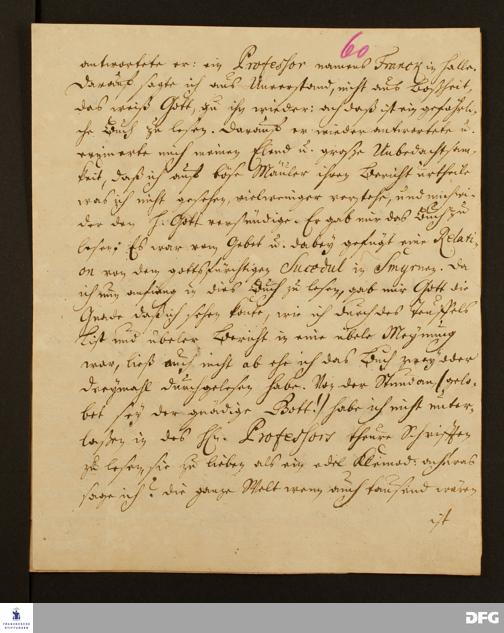 60
antwortete er: ein Professor namens Franck in Halle.
Darauf sagte ich aus Unverstand, nicht aus Boßheit,
das weiß Gott, zu ihm wieder: ach daß ist ein gefährli-
che Buch zu lesen. Darauf er wieder antwortete u.
erinnerte mich meinen Elend u. große Unbedachtsam-
keit, daß ich auß böse Mäuler ihren Bericht urtheile
was ich nicht gesehen, vielweniger verstehe, und mich wi-
der den H. Gott versündige. Er gab mir das Buch zu
lesen; Es war vom Gebet u. dabey gefügt eine Relati-
on von dem gottsfürchtigen in Smyrnen. Da
ich nun anfieng in dies Buch zu lesen, gab mir Gott die
Gnade daß ich sehen konte, wie ich durch des Teuffels
List und übeler Bericht in eine übele Meynung
war, ließ auch nicht ab ehe ich das Buch zwey oder
dreymahl durchgelesen habe. Von der Stund an (gelo-
bet sey der gnädige Gott!) habe ich nicht unter-
laßen in des Hn. Professors theure Schrifften
zu lesen, sie zu lieben als ein edel Kleinod:
sage ich? die ganze Welt wenn auch tausend wären
ist
FRANCKESCHE
STIFTUNGEN
DFG